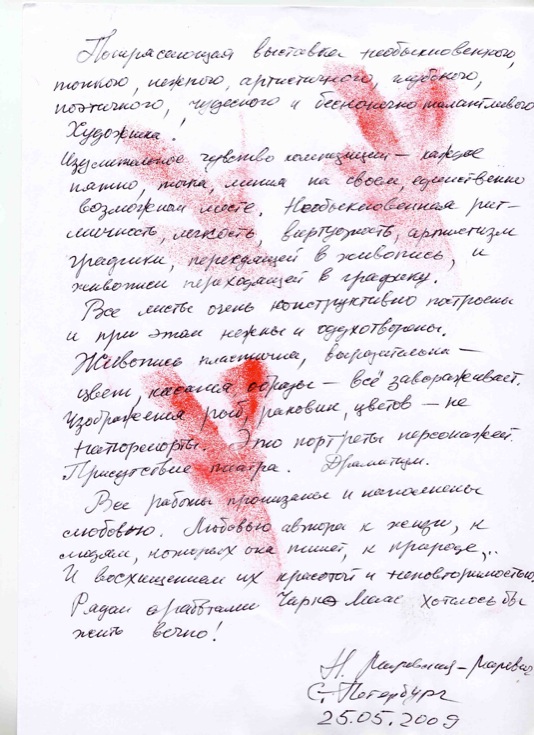 Потрясающая выставка необыкновенного,
тонкого, нежного, артистичного, глубокого,
поэтичного, чудесного и бесконечно талантливого
Художника!
Изумительное чувство композиции – каждое
пятно, точка, линия на своем, единственно
возможном месте. Необыкновенная рит-
мичность, легкость, виртуозность, артистизм
графики, переходящей в живопись, и
живописи переходящей в графику.
Все листы очень конструктивно построены
и при этом нежны и одухотворены.
Живопись пластична, выразительна –
цвет, касания образы – всё завораживает.
Изображения рыб, раковин, цветов – не
натюрморты. Это портреты персонажей.
Присутствие театра. Драматизм.
Все работы пронизаны и наполнены
любовью. Любовью автора к жизни, к
людям, которых она пишет, к природе,..
И восхищением их красотой и неповторимостью.
Рядом с работами Маас хотелось бы
жить вечно!
Н.
С.-Петербург
25.05.2009